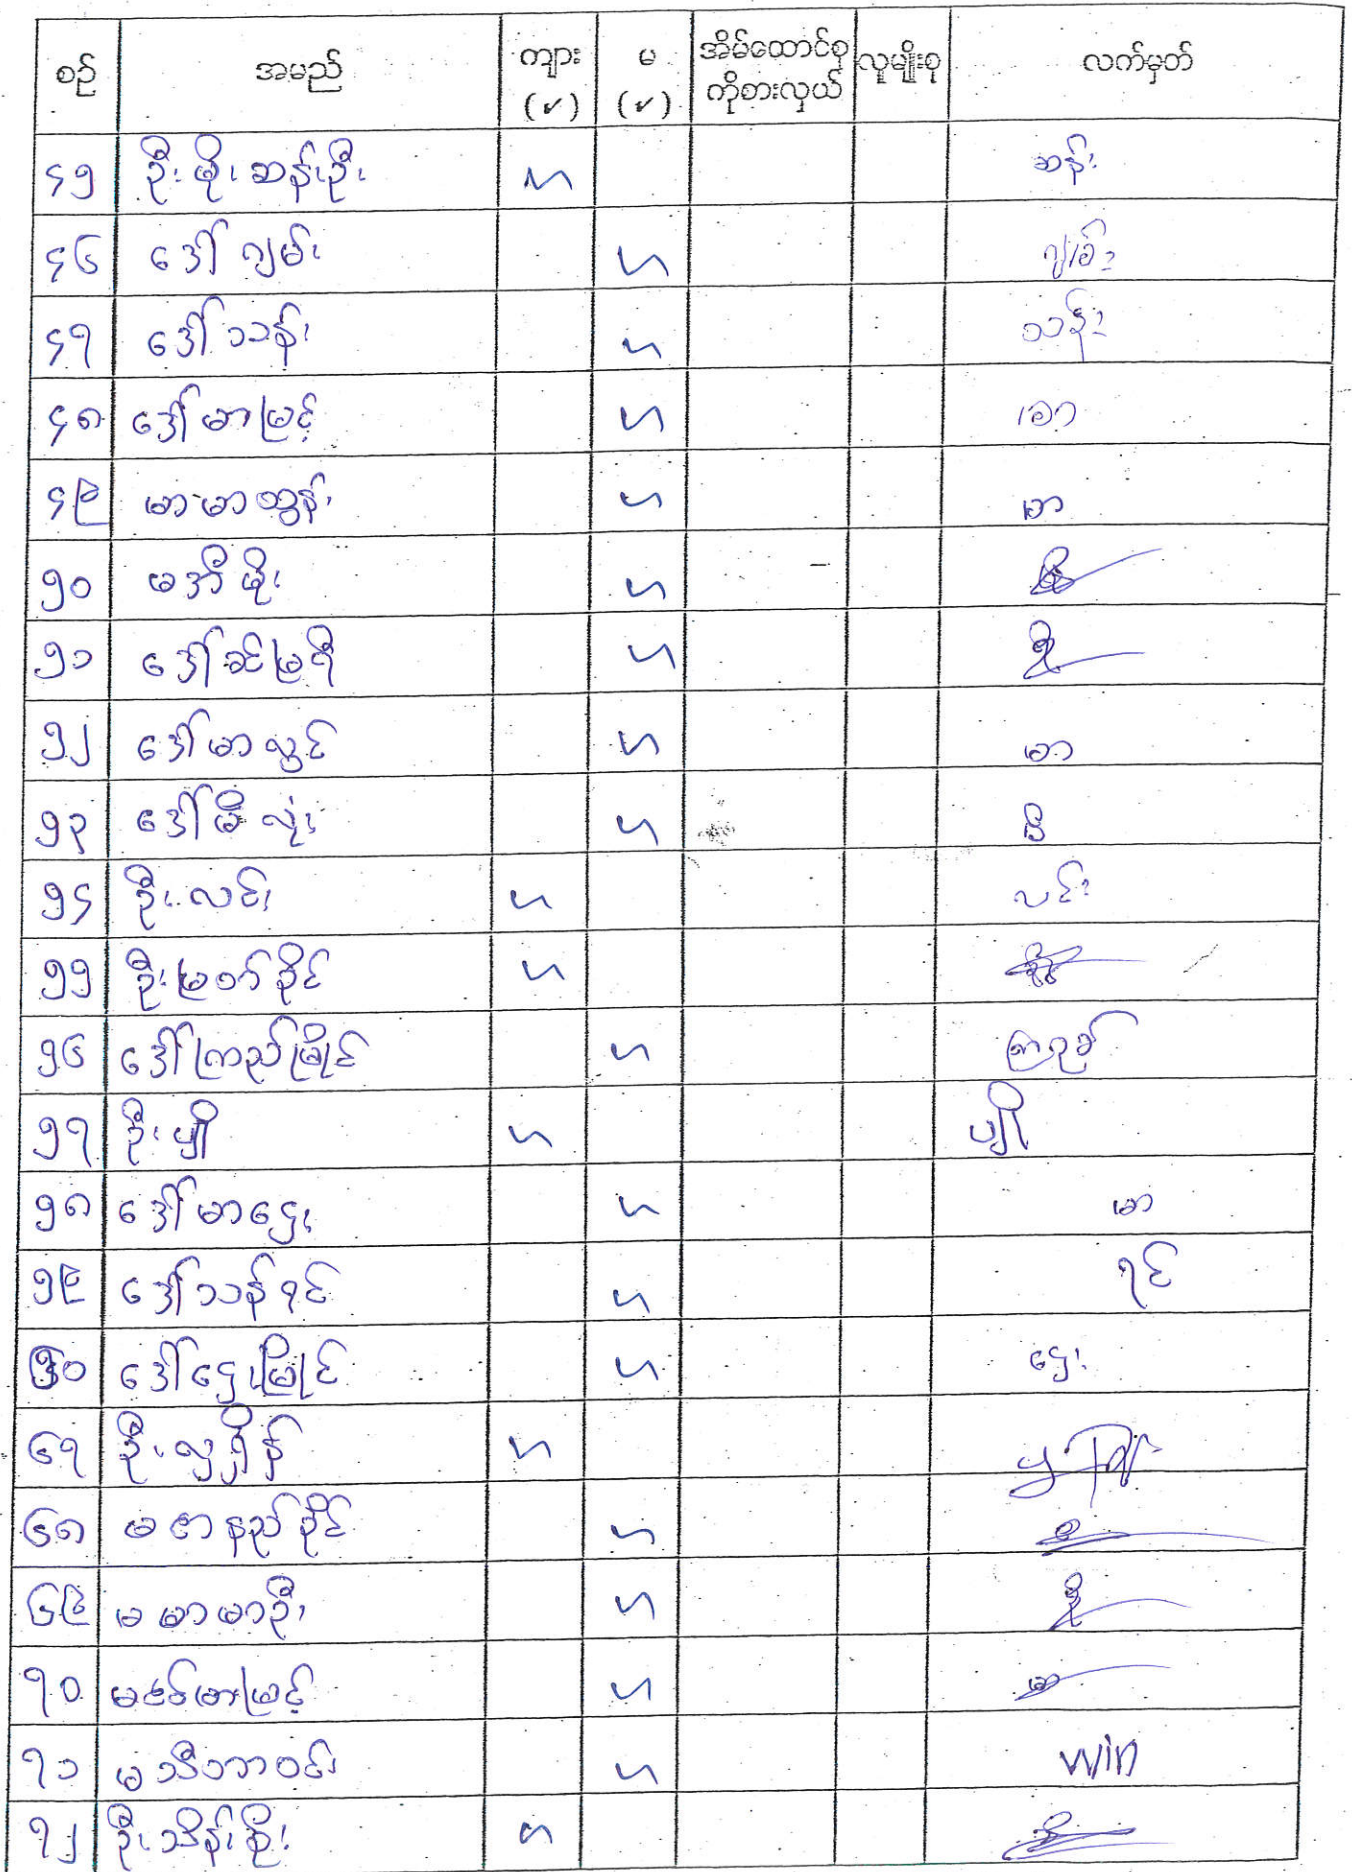 စဉ် အမည် ကျား (✓) မ (✓) အိမ်ထောင်စု ကိုစားလှယ် လူမျိုးစု လက်မှတ်
၄၅ ဦးမိုးဆန်းဦး ✓ ဆန်း
၄၆ ဒေါ်ဂျမ်း ✓ ဂျမ်း
၄၇ ဒေါ်သန်း ✓ သန်း
၄၈ ဒေါ်မာမြင့် ✓ မာ
၄၉ မာမာထွန်း ✓ မာ
၅၀ မအိမိုး ✓
၅၁ ဒေါ်ခင်မြရီ ✓
၅၂ ဒေါ်မာလွင် ✓ မာ
၅၃ ဒေါ်မိလုံး ✓ မိ
၅၄ ဦးလင်း ✓ လင်း
၅၅ ဦးမြတ်ခိုင် ✓
၅၆ ဒေါ်ကြည်မြိုင် ✓
၅၇ ဦးပျို ✓ ပျို
၅၈ ဒေါ်မာဌေး ✓ မာ
၅၉ ဒေါ်သန်ရင် ✓ ရင်
၆၀ ဒေါ်ဌေးမြိုင် ✓ ဌေး
၆၇ ဦးလှရှိန် ✓
၆၈ မဇာနည်ခိုင် ✓
၆၉ မမာမာဦး ✓
၇၀ မဇင်မာမြင့် ✓ မာ
၇၁ မသီတာဝင်း ✓ Win
၇၂ ဦးသိန်းစိုး ✓